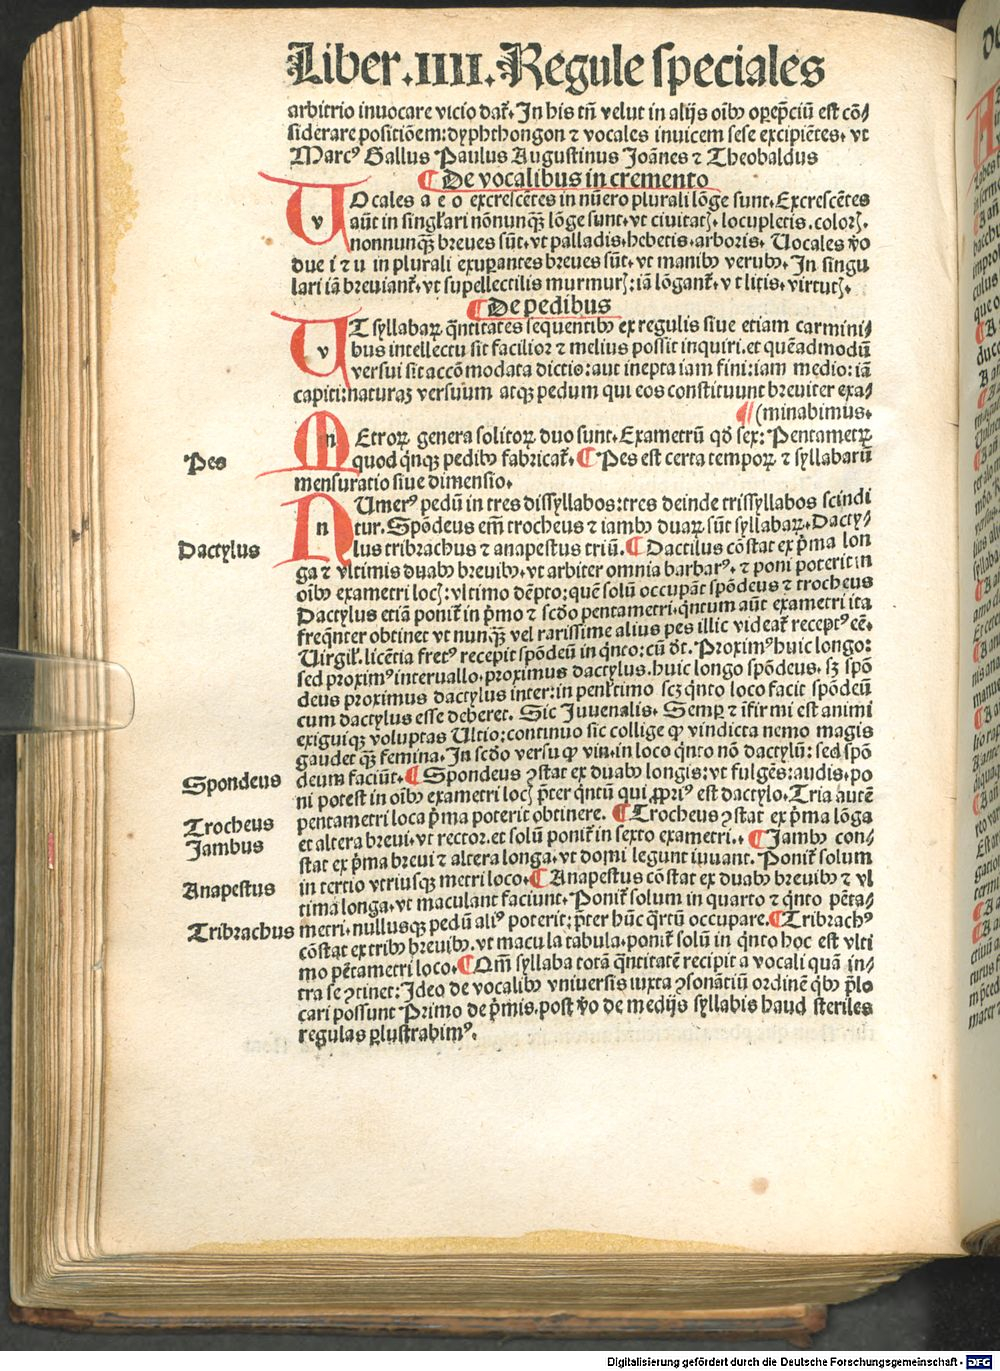 Liber .IIII. Regule speciales
arbitrio inuocare vicio dat̃. In his tñ velut in alijs oĩbꝰ op̱ep̃ciũ est cõ/
siderare positiõem: dyphthongon ⁊ vocales inuicem sese excipiẽtes. vt
Marcꝰ Gallus Paulus Augustinus Joãnes ⁊ Theobaldus
¶ De vocalibus in cremento
VOcales a e o excrescẽtes in nũero plurali lõge sunt. Excrescẽtes
v
aũt in singl̃ari nõnunqꝫ lõge sunt. vt ciuitatꝭ. locupletis. colorꝭ.
nonnunqꝫ breues sũt. vt palladis. hebetis. arboris. Uocales ṽo
due i ⁊ u in plurali exuꝑantes breues sũt. vt manibꝰ verubꝰ. In singu
lari iã breuiant̃. vt supellectilis murmurꝭ: iã lõgant̃. v t litis. virtutꝭ.
¶ De pedibus
VT syllabaꝝ q̃ntitates sequentibꝰ ex regulis siue etiam carmini/
v
bus intellectu sit facilior ⁊ melius possit inquiri. et quẽadmodũ
versui sit accõmodata dictio: aut inepta iam fini: iam medio: iã
capiti: naturaꝫ versuum atqꝫ pedum qui eos constituunt breuiter exa/
¶ (minabimus.
MEtroꝝ genera solitoꝝ duo sunt. Exametrũ qđ sex: Pentametꝝ
m
quod q̃nqꝫ pedibꝰ fabricat̃. ¶ Pes est certa tempoꝝ ⁊ syllabarũ
Pes
mensuratio siue dimensio.
NUmerꝰ pedũ in tres dissyllabos: tres deinde trissyllabos scindi
n
tur. Spõdeus em̃ trocheus ⁊ iambꝰ duaꝝ sũt syllabaꝝ. Dacty/
Dactylus
lus tribrachus ⁊ anapestus triũ. ¶ Dactilus cõstat ex p̃ma lon
ga ⁊ vltimis duabꝰ breuibꝰ. vt arbiter omnia barbarꝰ. ⁊ poni poterit in
oĩbꝰ exametri locꝭ: vltimo dẽpto: quẽ solũ occupãt spõdeus ⁊ trocheus
Dactylus etiã ponit̃ in p̃mo ⁊ scđo pentametri. q̃ntum aũt exametri ita
freq̃nter obtinet vt nunqꝫ vel rarissime alius pes illic videat̃ receptꝰ eẽ.
Uirgil̃. licẽtia fretꝰ recepit spõdeũ in q̃nto: cũ đt. Proximꝰ huic longo:
sed proximꝰ interuallo. proximus dactylus. huic longo spõdeus. sꝫ spõ
deus proximus dactylus inter: in penl̃timo scꝫ q̃nto loco facit spõdeũ
cum dactylus esse deberet. Sic Juuenalis. Semꝑ ⁊ ĩfirmi est animi
exiguiqꝫ voluptas Ultio: continuo sic collige ꝙ vindicta nemo magis
gaudet qꝫ femina. In scđo versu ꝙ vin. in loco q̃nto nõ dactylũ: sed spõ
Spondeus
deum faciũt. ¶ Spondeus ꝯstat ex duabꝰ longis: vt fulgẽs: audis. po
ni potest in oĩbꝰ exametri locꝭ p̃ter q̃ntũ qui ꝓpriꝰ est dactylo. Tria autẽ
pentametri loca p̃ma poterit obtinere. ¶ Trocheus ꝯstat ex p̃ma lõga
Trocheus
et altera breui. vt rector. et solũ ponit̃ in sexto exametri. ¶ Jambꝰ con/
Jambus
stat ex p̃ma breui ⁊ altera longa. vt domi legunt iuuant. Ponit̃ solum
in tertio vtriusqꝫ metri loco. ¶ Anapestus cõstat ex duabꝰ breuibꝰ ⁊ vl
Anapestus
tima longa. vt maculant faciunt. Ponit̃ solum in quarto ⁊ q̃nto pẽta/
metri. nullusqꝫ pedũ aliꝰ poterit: p̃ter hũc q̃rtũ occupare. ¶ Tribrachꝰ
Tribrachus
cõstat ex tribꝰ breuibꝰ. vt macula tabula. ponit̃ solũ in q̃nto hoc est vlti
mo pẽtametri loco. ¶ Qm̃ syllaba totã q̃ntitatẽ recipit a vocali quã in/
tra se ꝯtinet: Ideo de vocalibꝰ vniuersis iuxta ꝯsonãtiũ ordinẽ qͥbꝰ p̃lo
cari possunt Primo de p̃mis. post ṽo de medijs syllabis haud steriles
regulas ꝑlustrabimꝰ.
Digitalisierung gefördert durch die Deutsche Forschungsgemeinschaft - DFG